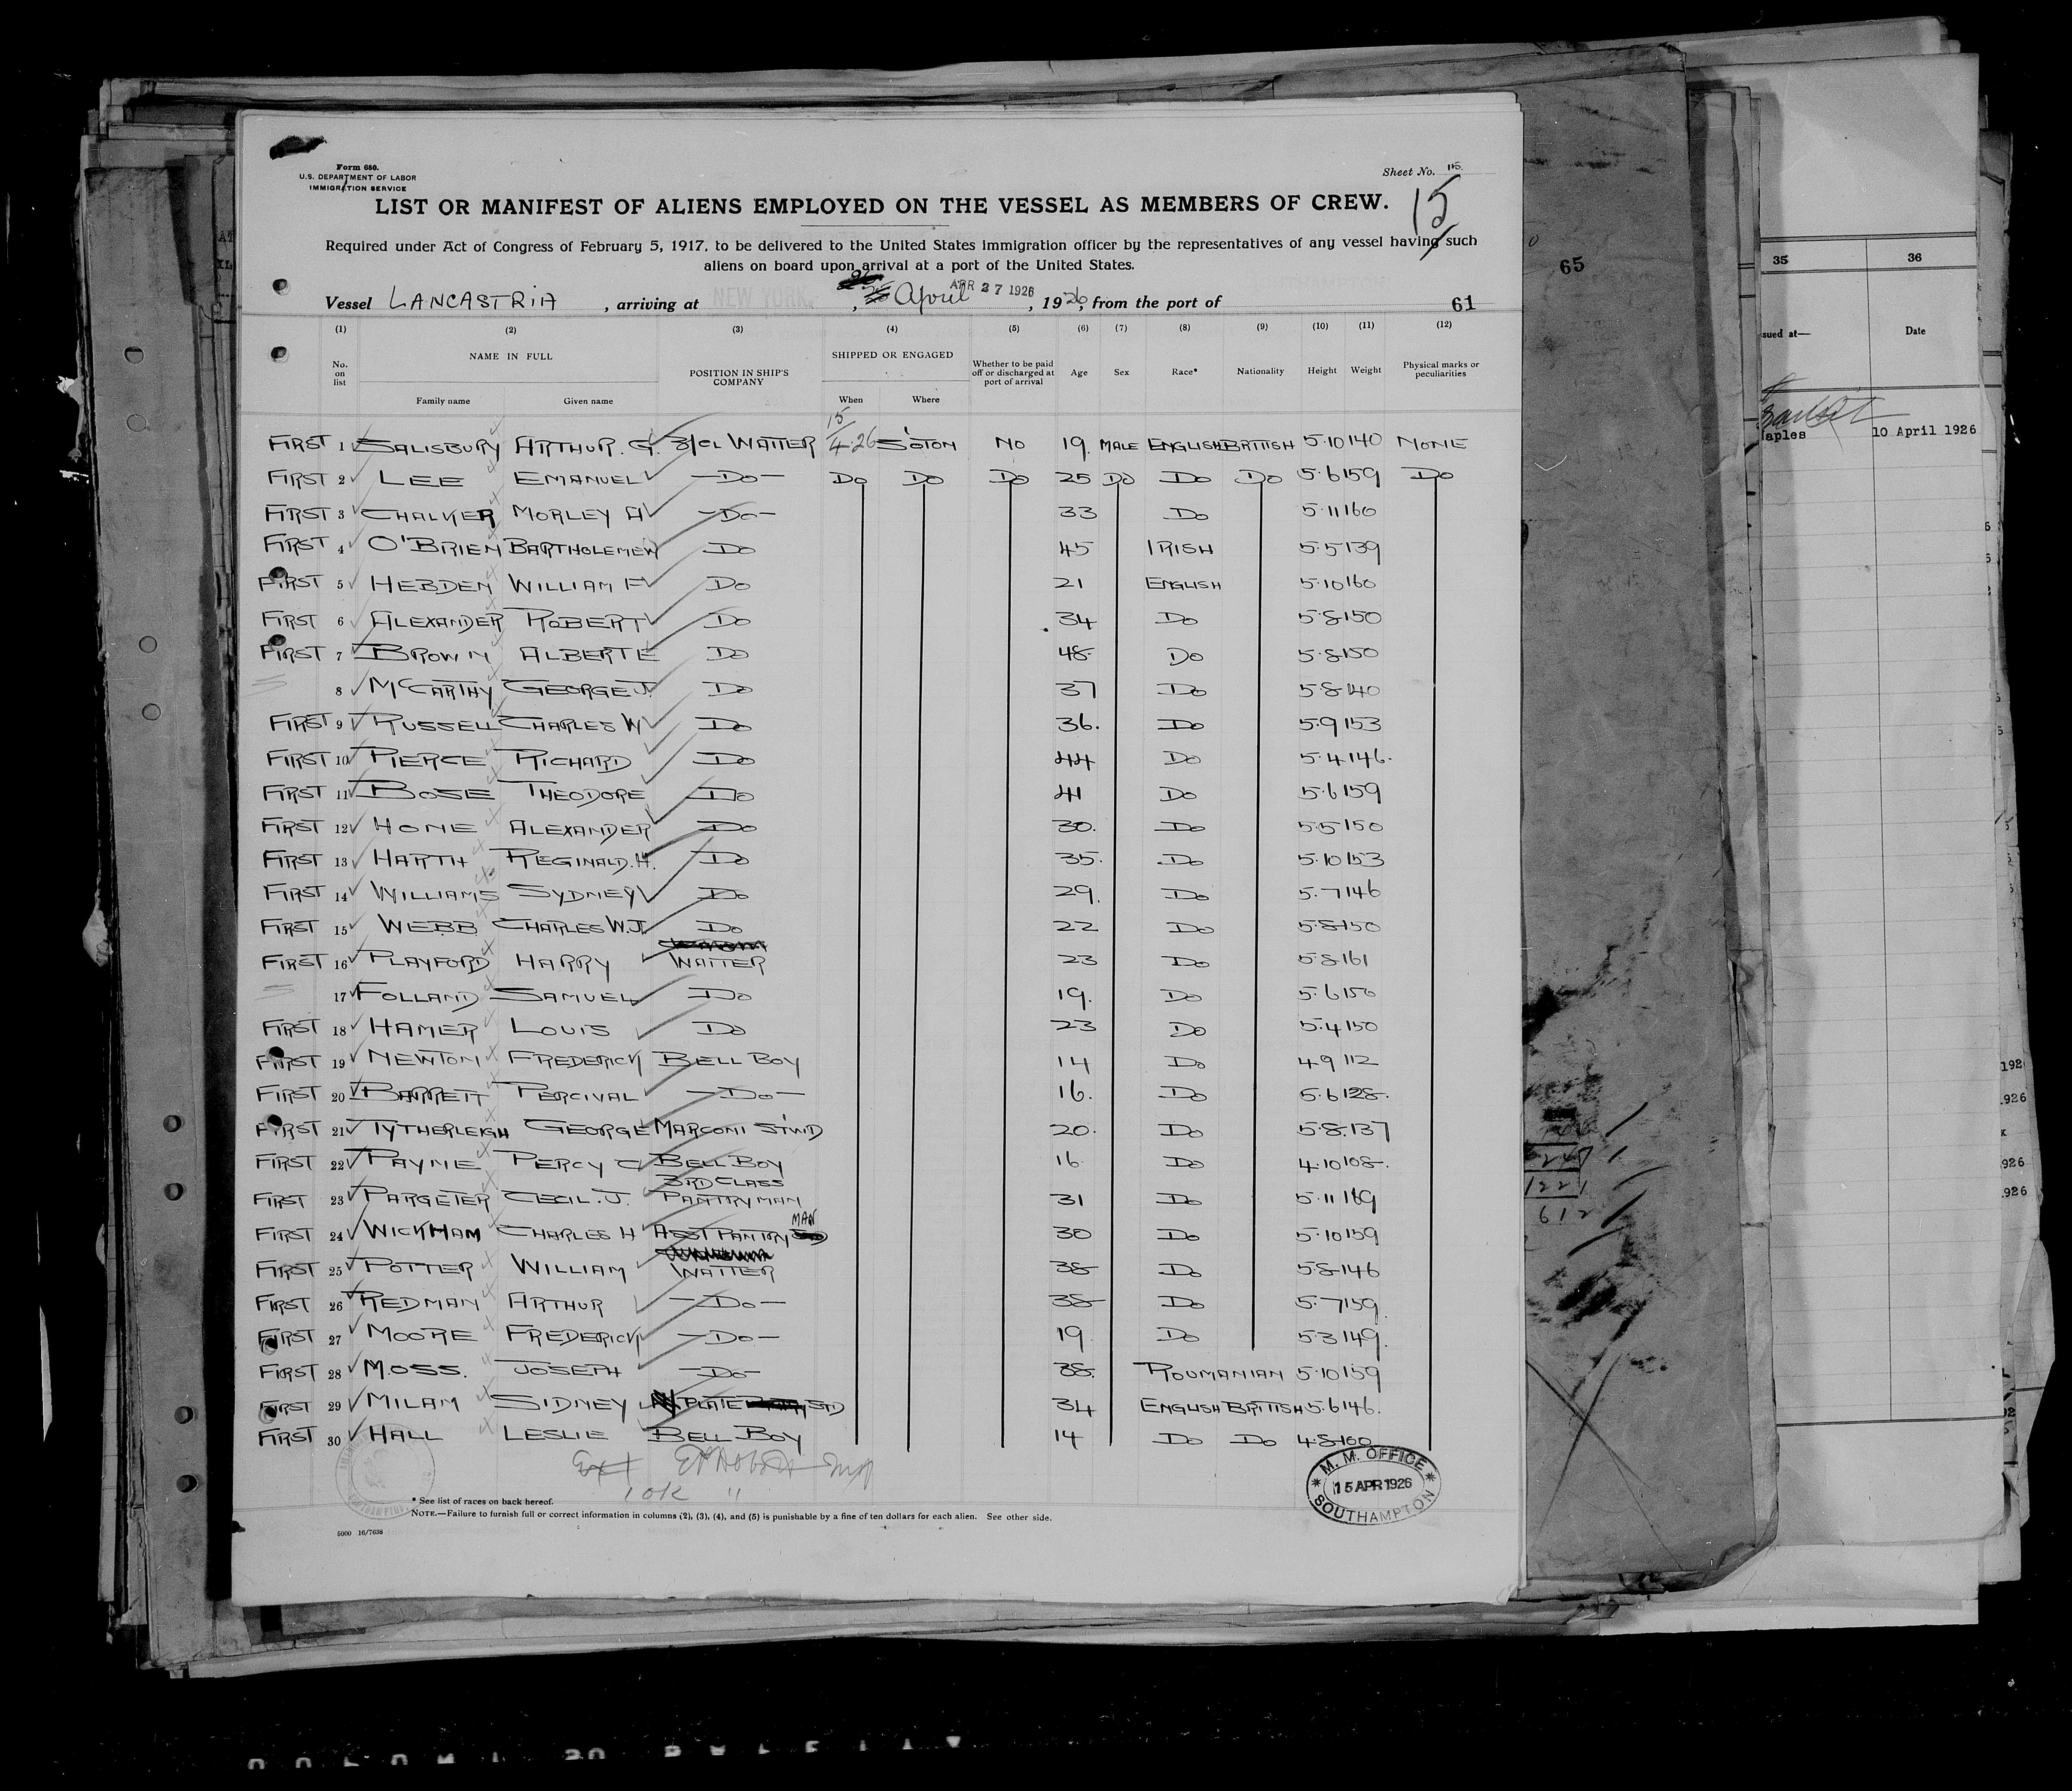 Form 680.
U.S. DEPARTMENT OF LABOR
IMMIGRATION SERVICE
Sheet No. 15.
15
LIST OR MANIFEST OF ALIENS EMPLOYED ON THE VESSEL AS MEMBERS OF CREW.
Required under Act of Congress of February 5, 1917, to be delivered to the United States immigration officer by the representatives of any vessel having such
aliens on board upon arrival at a port of the United States.
Vessel LANCASTRIA, arriving at NEW YORK, April APR 27 1926, 1926, from the port of 61
(1) (2) (3) (4) (5) (6) (7) (8) (9) (10) (11) (12)
No. on list NAME IN FULL Family name Given name POSITION IN SHIP'S COMPANY SHIPPED OR ENGAGED When Where Whether to be paid off or discharged at port of arrival Age Sex Race* Nationality Height Weight Physical marks or peculiarities
FIRST 1 SALISBURY ARTHUR. G. 3/CL WAITER 15/4.26 S'OTON NO 19. MALE ENGLISH BRITISH 5.10 140 NONE
FIRST 2 LEE EMANUEL —Do— Do Do Do 25 Do Do Do 5.6 159 Do
FIRST 3 CHALKER MORLEY A —Do— 33 Do 5.11 160
FIRST 4 O'BRIEN BARTHOLEMEW Do 45 IRISH 5.5 139
FIRST 5 HEBDEN WILLIAM F Do 21 ENGLISH 5.10 160
FIRST 6 ALEXANDER ROBERT Do 34 Do 5.8 150
FIRST 7 BROWN ALBERT E Do 48 Do 5.8 150
8 McCARTHY GEORGE J. Do 37 Do 5.8 140
FIRST 9 RUSSELL CHARLES W Do 36. Do 5.9 153
FIRST 10 PIERCE RICHARD Do 44 Do 5.4 146.
FIRST 11 BOSIE THEODORE Do 41 Do 5.6 159
FIRST 12 HONE ALEXANDER Do 30. Do 5.5 150
FIRST 13 HARTH REGINALD. H. Do 35. Do 5.10 153
FIRST 14 WILLIAMS SYDNEY Do 29. Do 5.7 146
FIRST 15 WEBB CHARLES W.J. Do 22 Do 5.8 150
FIRST 16 PLAYFORD HARRY WAITER 23 Do 5.8 161
17 FOLLAND SAMUEL Do 19. Do 5.6 150
FIRST 18 HAMER LOUIS Do 23 Do 5.4 150
FIRST 19 NEWTON FREDERICK BELL BOY 14 Do 4.9 112
FIRST 20 BARRETT PERCIVAL —Do— 16. Do 5.6 128.
FIRST 21 TYTHERLEIGH GEORGE MARCONI ST'WD 20. Do 5.8.137
FIRST 22 PAYNE PERCY C BELL BOY 16. Do 4.10 108.
FIRST 23 PARGETER CECIL. J. 3RD CLASS PANTRYMAN 31 Do 5.11 189
FIRST 24 WICKHAM CHARLES H ASST PANTRY MAN 30 Do 5.10 159
FIRST 25 POTTER WILLIAM WAITER 38 Do 5.8 146
FIRST 26 REDMAN ARTHUR —Do— 38 Do 5.7 159.
FIRST 27 MOORE FREDERICK —Do— 19. Do 5.3 149.
FIRST 28 MOSS. JOSEPH —Do— 38. ROUMANIAN 5.10 159
FIRST 29 MILAM SIDNEY PLATE STD 34 ENGLISH BRITISH 5.6 146.
FIRST 30 HALL LESLIE BELL BOY 14 Do Do 4.8 100
M. M. OFFICE
15 APR 1926
SOUTHAMPTON
* See list of races on back hereof.
NOTE.—Failure to furnish full or correct information in columns (2), (3), (4), and (5) is punishable by a fine of ten dollars for each alien. See other side.
5000 16/7638
65
35 36
sued at— Date
aples 10 April 1926
1221
612